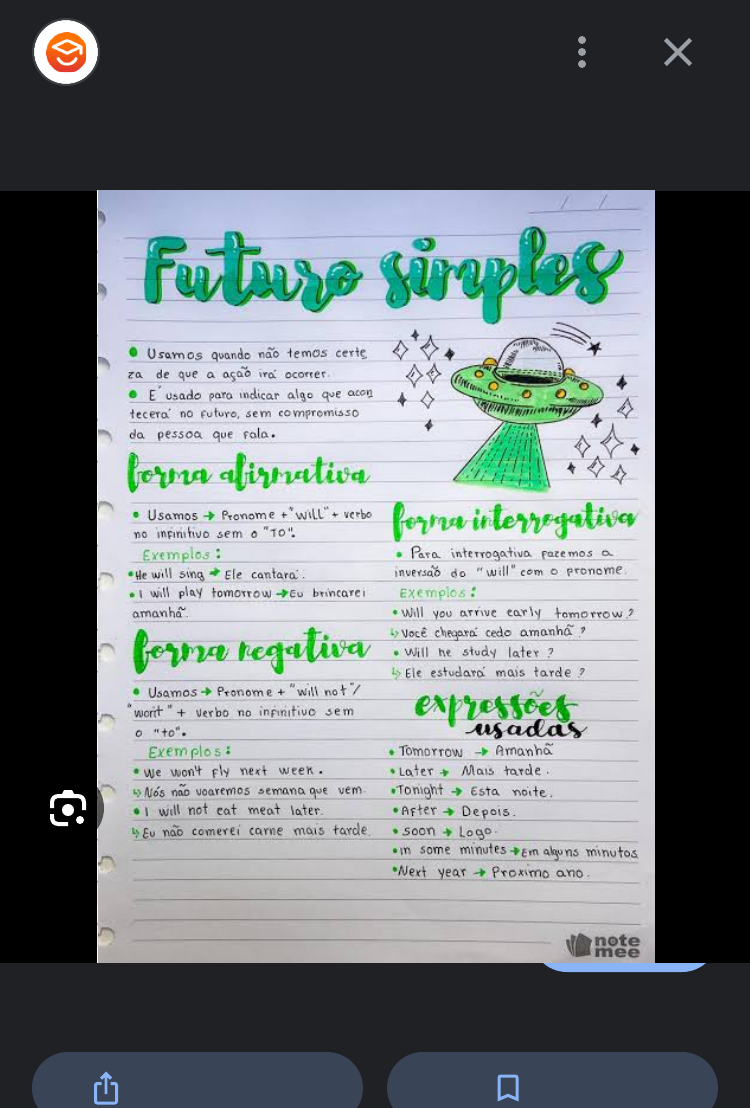 Futuro simples
• Usamos quando não temos certe
za de que a ação irá ocorrer.
• É usado para indicar algo que acon
tecerá no futuro, sem compromisso
da pessoa que fala.
forma afirmativa
• Usamos → Pronome + "will" + verbo
no infinitivo sem o "TO".
Exemplos:
• He will sing → Ele cantará.
• I will play tomorrow → Eu brincarei
amanhã.
forma negativa
• Usamos → Pronome + "will not"/
"won't" + verbo no infinitivo sem
o "to".
Exemplos:
• We won't fly next week.
↳ Nós não voaremos semana que vem.
• I will not eat meat later.
↳ Eu não comerei carne mais tarde.
forma interrogativa
• Para interrogativa fazemos a
inversão do "will" com o pronome.
Exemplos:
• Will you arrive early tomorrow?
↳ Você chegará cedo amanhã?
• Will he study later?
↳ Ele estudará mais tarde?
expressões
usadas
• Tomorrow → Amanhã
• Later → Mais tarde.
• Tonight → Esta noite.
• After → Depois.
• soon → Logo.
• in some minutes → Em alguns minutos
• Next year → Proximo ano.
note
mee